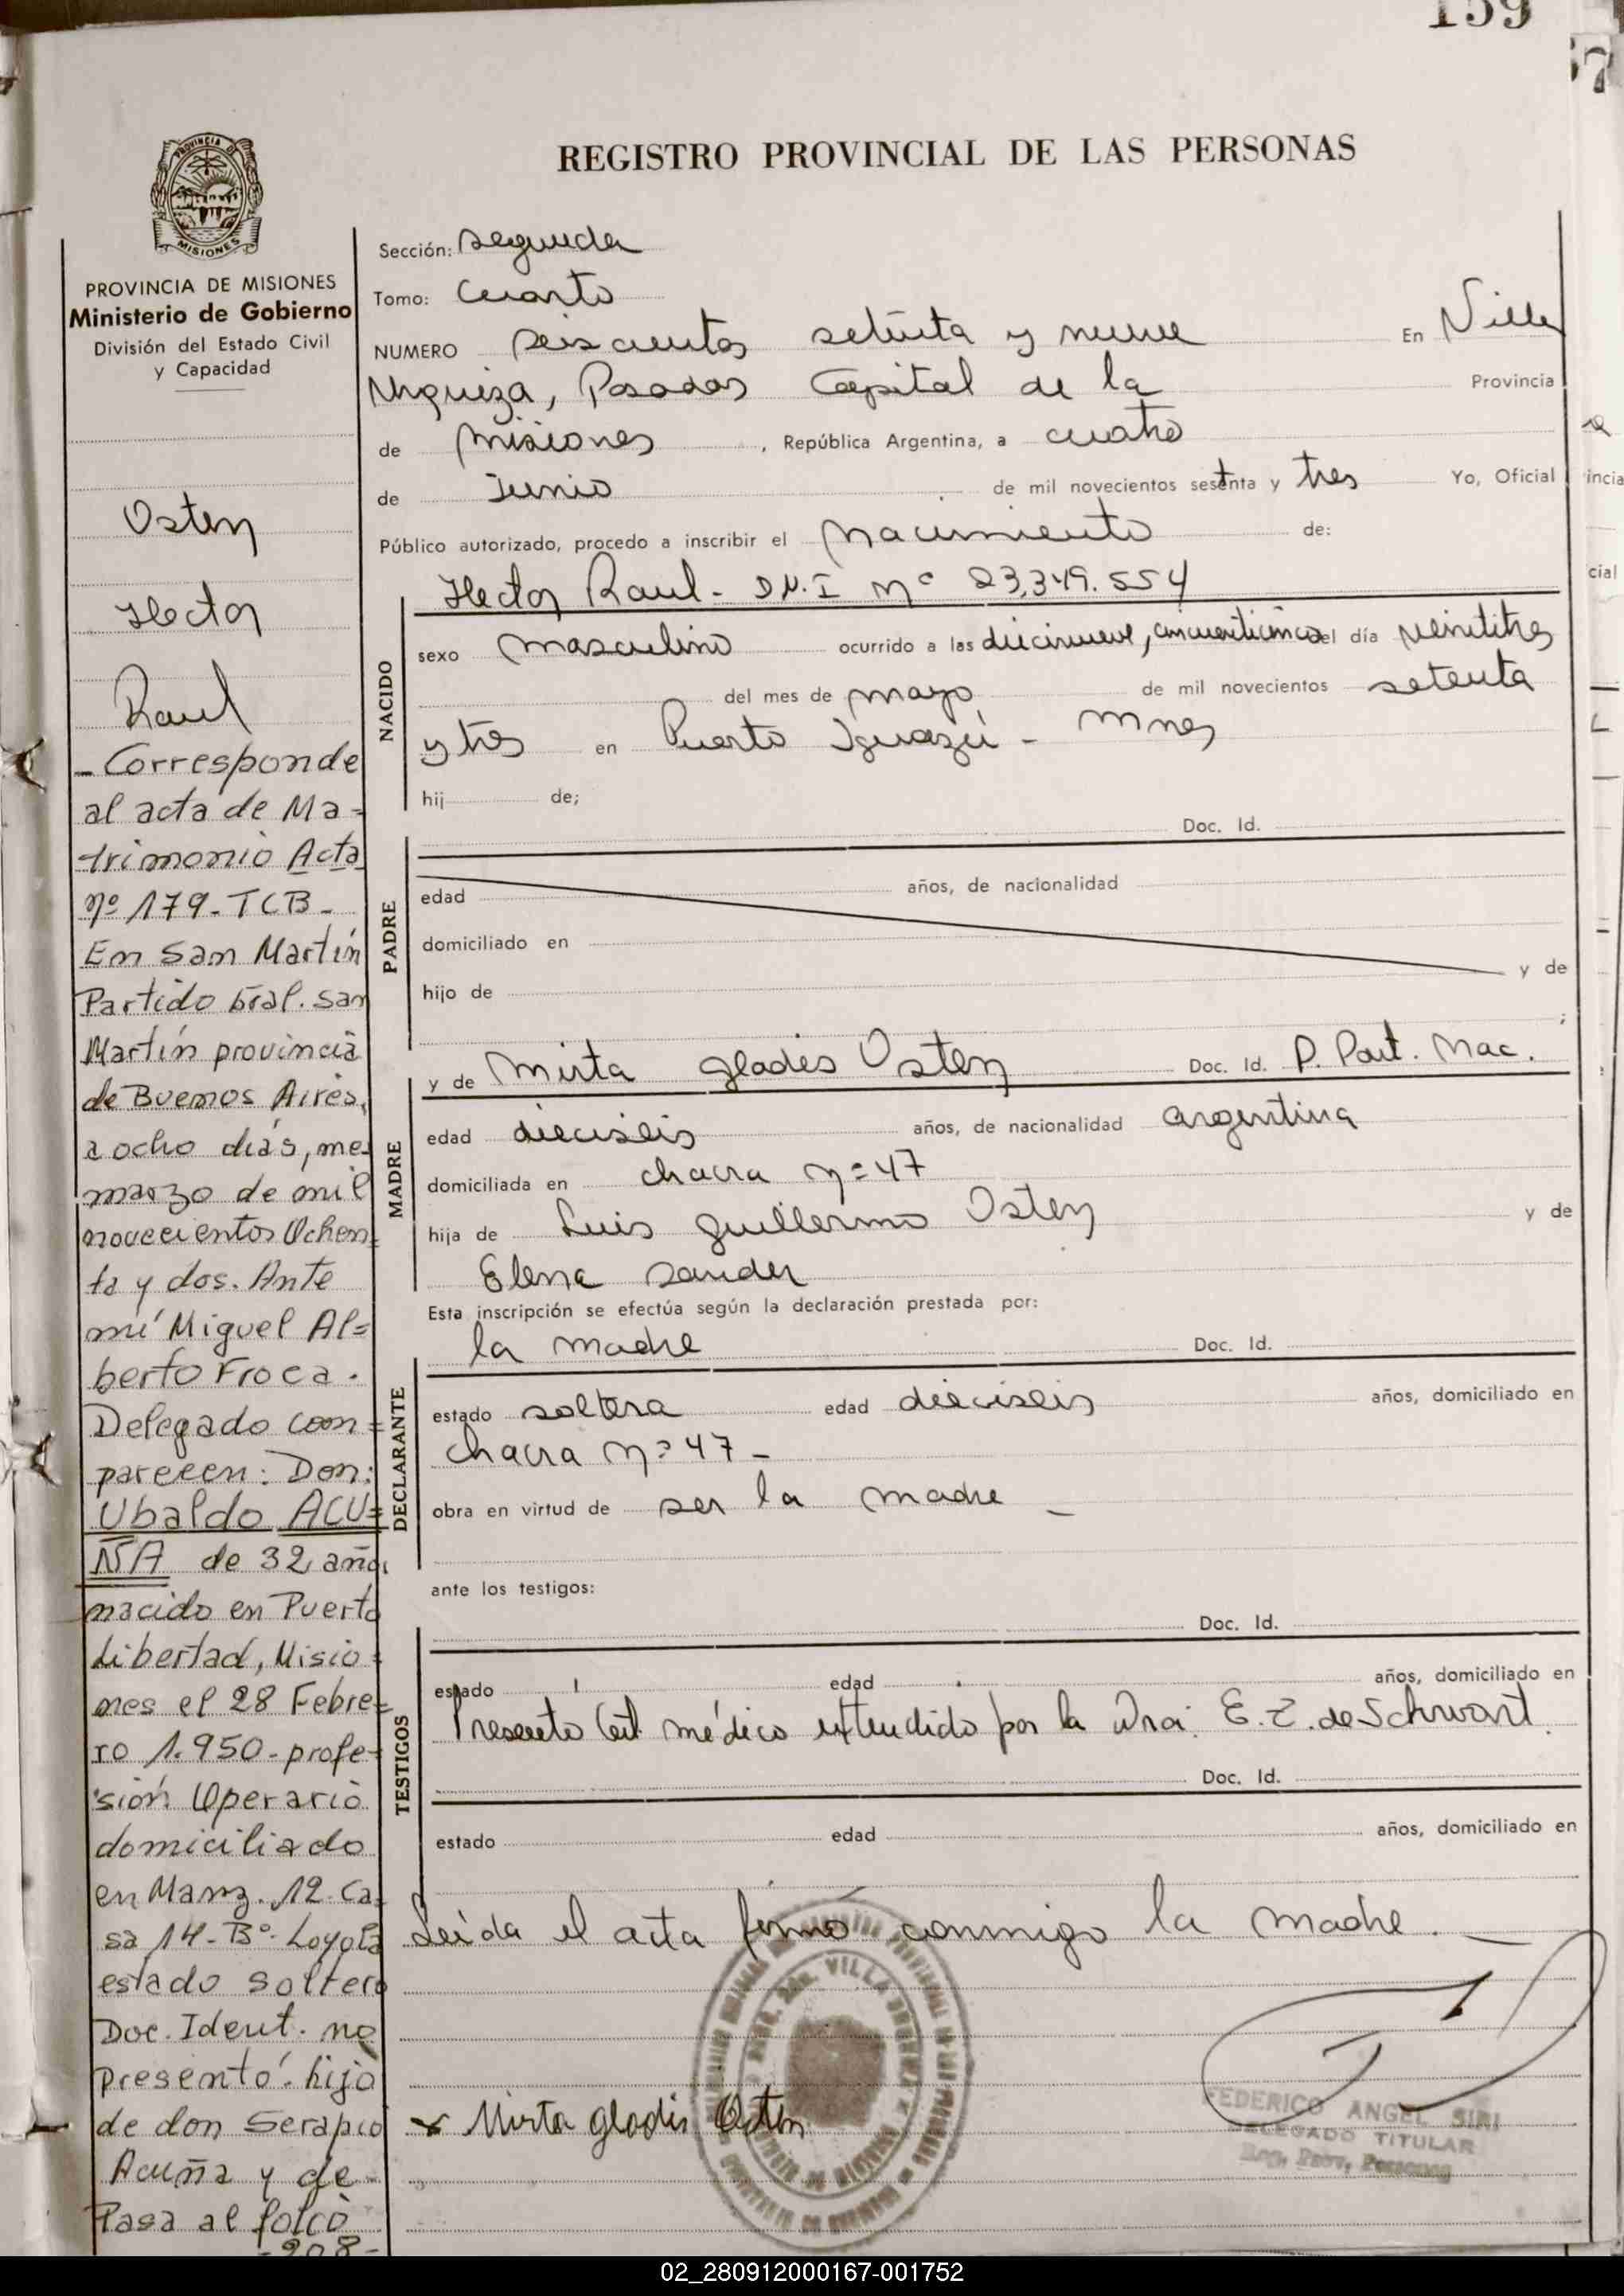 159
57
REGISTRO PROVINCIAL DE LAS PERSONAS
PROVINCIA DE
MISIONES
PROVINCIA DE MISIONES
Ministerio de Gobierno
División del Estado Civil
y Capacidad
Osten
Hector
Raul
- Corresponde
al acta de Ma=
trimonio Acta
nº 179- TCB-
En San Martín
Partido Gral. San
Martín provincia
de Buenos Aires,
a ocho días, mes
marzo de mil
novecientos Ochen=
ta y dos. Ante
mí Miguel Al=
berto Froca.
Delegado com=
parecen: Don:
Ubaldo ACU=
ÑA de 32 años
nacido en Puerto
Libertad, Misio=
nes el 28 Febre=
ro 1.950- profe=
sión Operario
domiciliado
en Manz. 12 Ca=
sa 14- Bº. Loyola
estado soltero
Doc. Ident. no
presentó. hijo
de don Serapio
Acuña y de
Pasa al folio
-208-
Sección: segunda
Tomo: Cuarto
NUMERO seiscientos setenta y nueve En Villa
Urquiza, Posadas Capital de la Provincia
de Misiones, República Argentina, a cuatro
de Junio de mil novecientos setenta y tres Yo, Oficial
Público autorizado, procedo a inscribir el nacimiento de:
Hector Raul- D.N.I nº 23.349.554
NACIDO
sexo masculino ocurrido a las diecinueve, cincuenticinco del día veintitres
del mes de mayo de mil novecientos setenta
y tres en Puerto Iguazú - Mnes
hij de;
Doc. Id.
PADRE
edad años, de nacionalidad
domiciliado en
hijo de y de
;
y de Mirta Gladis Osten Doc. Id. P. Part. Nac.
MADRE
edad dieciseis años, de nacionalidad argentina
domiciliada en chacra nº 47
hija de Luis Guillermo Osten y de
Elena Sander
Esta inscripción se efectúa según la declaración prestada por:
la madre Doc. Id.
DECLARANTE
estado soltera edad dieciseis años, domiciliado en
chacra nº 47-
obra en virtud de ser la madre -
ante los testigos:
Doc. Id.
TESTIGOS
estado edad años, domiciliado en
Presento Cert. médico extendido por la Dra: E. Z. de Schwart.
Doc. Id.
estado edad años, domiciliado en
Leída el acta firmó conmigo la madre. -
Mirta Gladis Osten
FEDERICO ANGEL SIRI
DELEGADO TITULAR
Reg. Prov. Personas
02_280912000167-001752